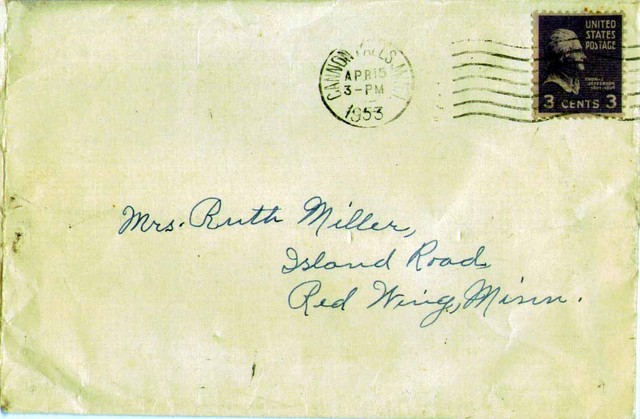 CANNON FALLS, MINN.
APR 15
3-PM
1953
UNITED
STATES
POSTAGE
3 CENTS 3
Mrs. Ruth Miller,
Island Road
Red Wing, Minn.